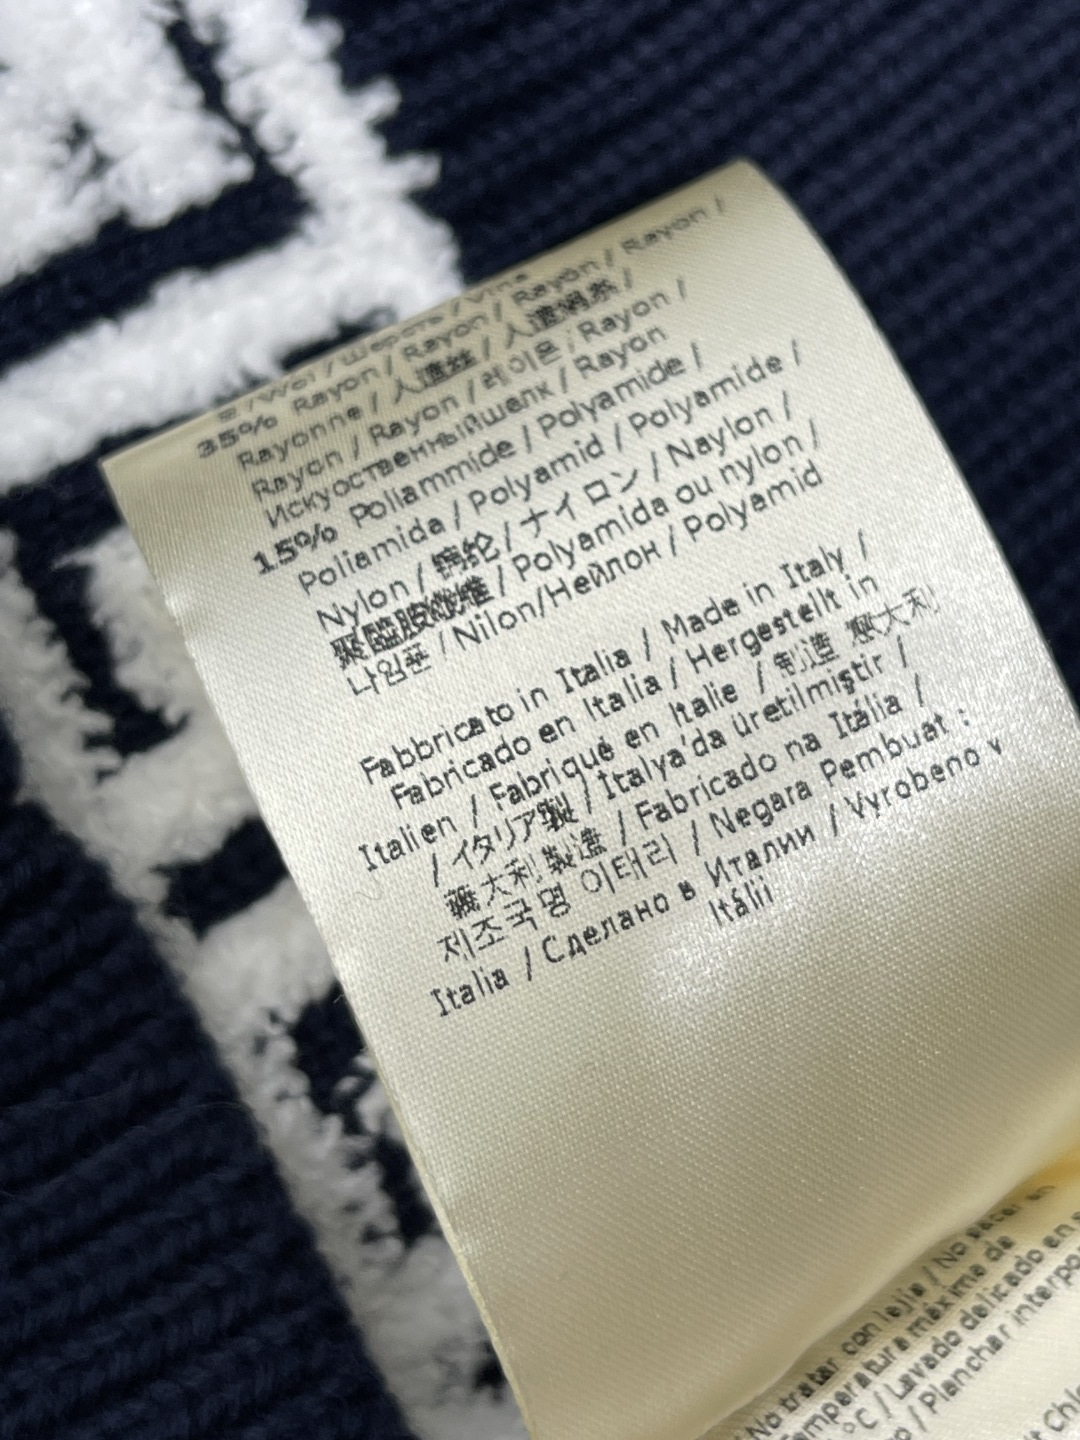 / Шерсть / Vlna
35% Rayon / Rayon / Rayon / Rayon /
Rayonne / 人造丝 / 人造絹絲 /
Rayon / Rayon / 레이온 / Rayon /
Искусственныйшелк / Rayon
15% Poliammide / Polyamide /
Poliamida / Polyamid / Polyamide /
Nylon / 锦纶 / ナイロン / Naylon /
聚醯胺纖維 / Polyamida ou nylon /
나일론 / Nilon/Нейлон / Polyamid
Fabbricato in Italia / Made in Italy /
Fabricado en Italia / Hergestellt in
Italien / Fabriqué en Italie / 制造 意大利
/ イタリア製 / İtalya'da üretilmiştir /
義大利 製造 / Fabricado na Itália /
제조국명 이태리 / Negara Pembuat :
Italia / Сделано в Италии / Vyrobeno v
Itálii
No tratar con lejía / No secar en
Temperatura máxima de
°C / Lavado delicado en
/ Planchar